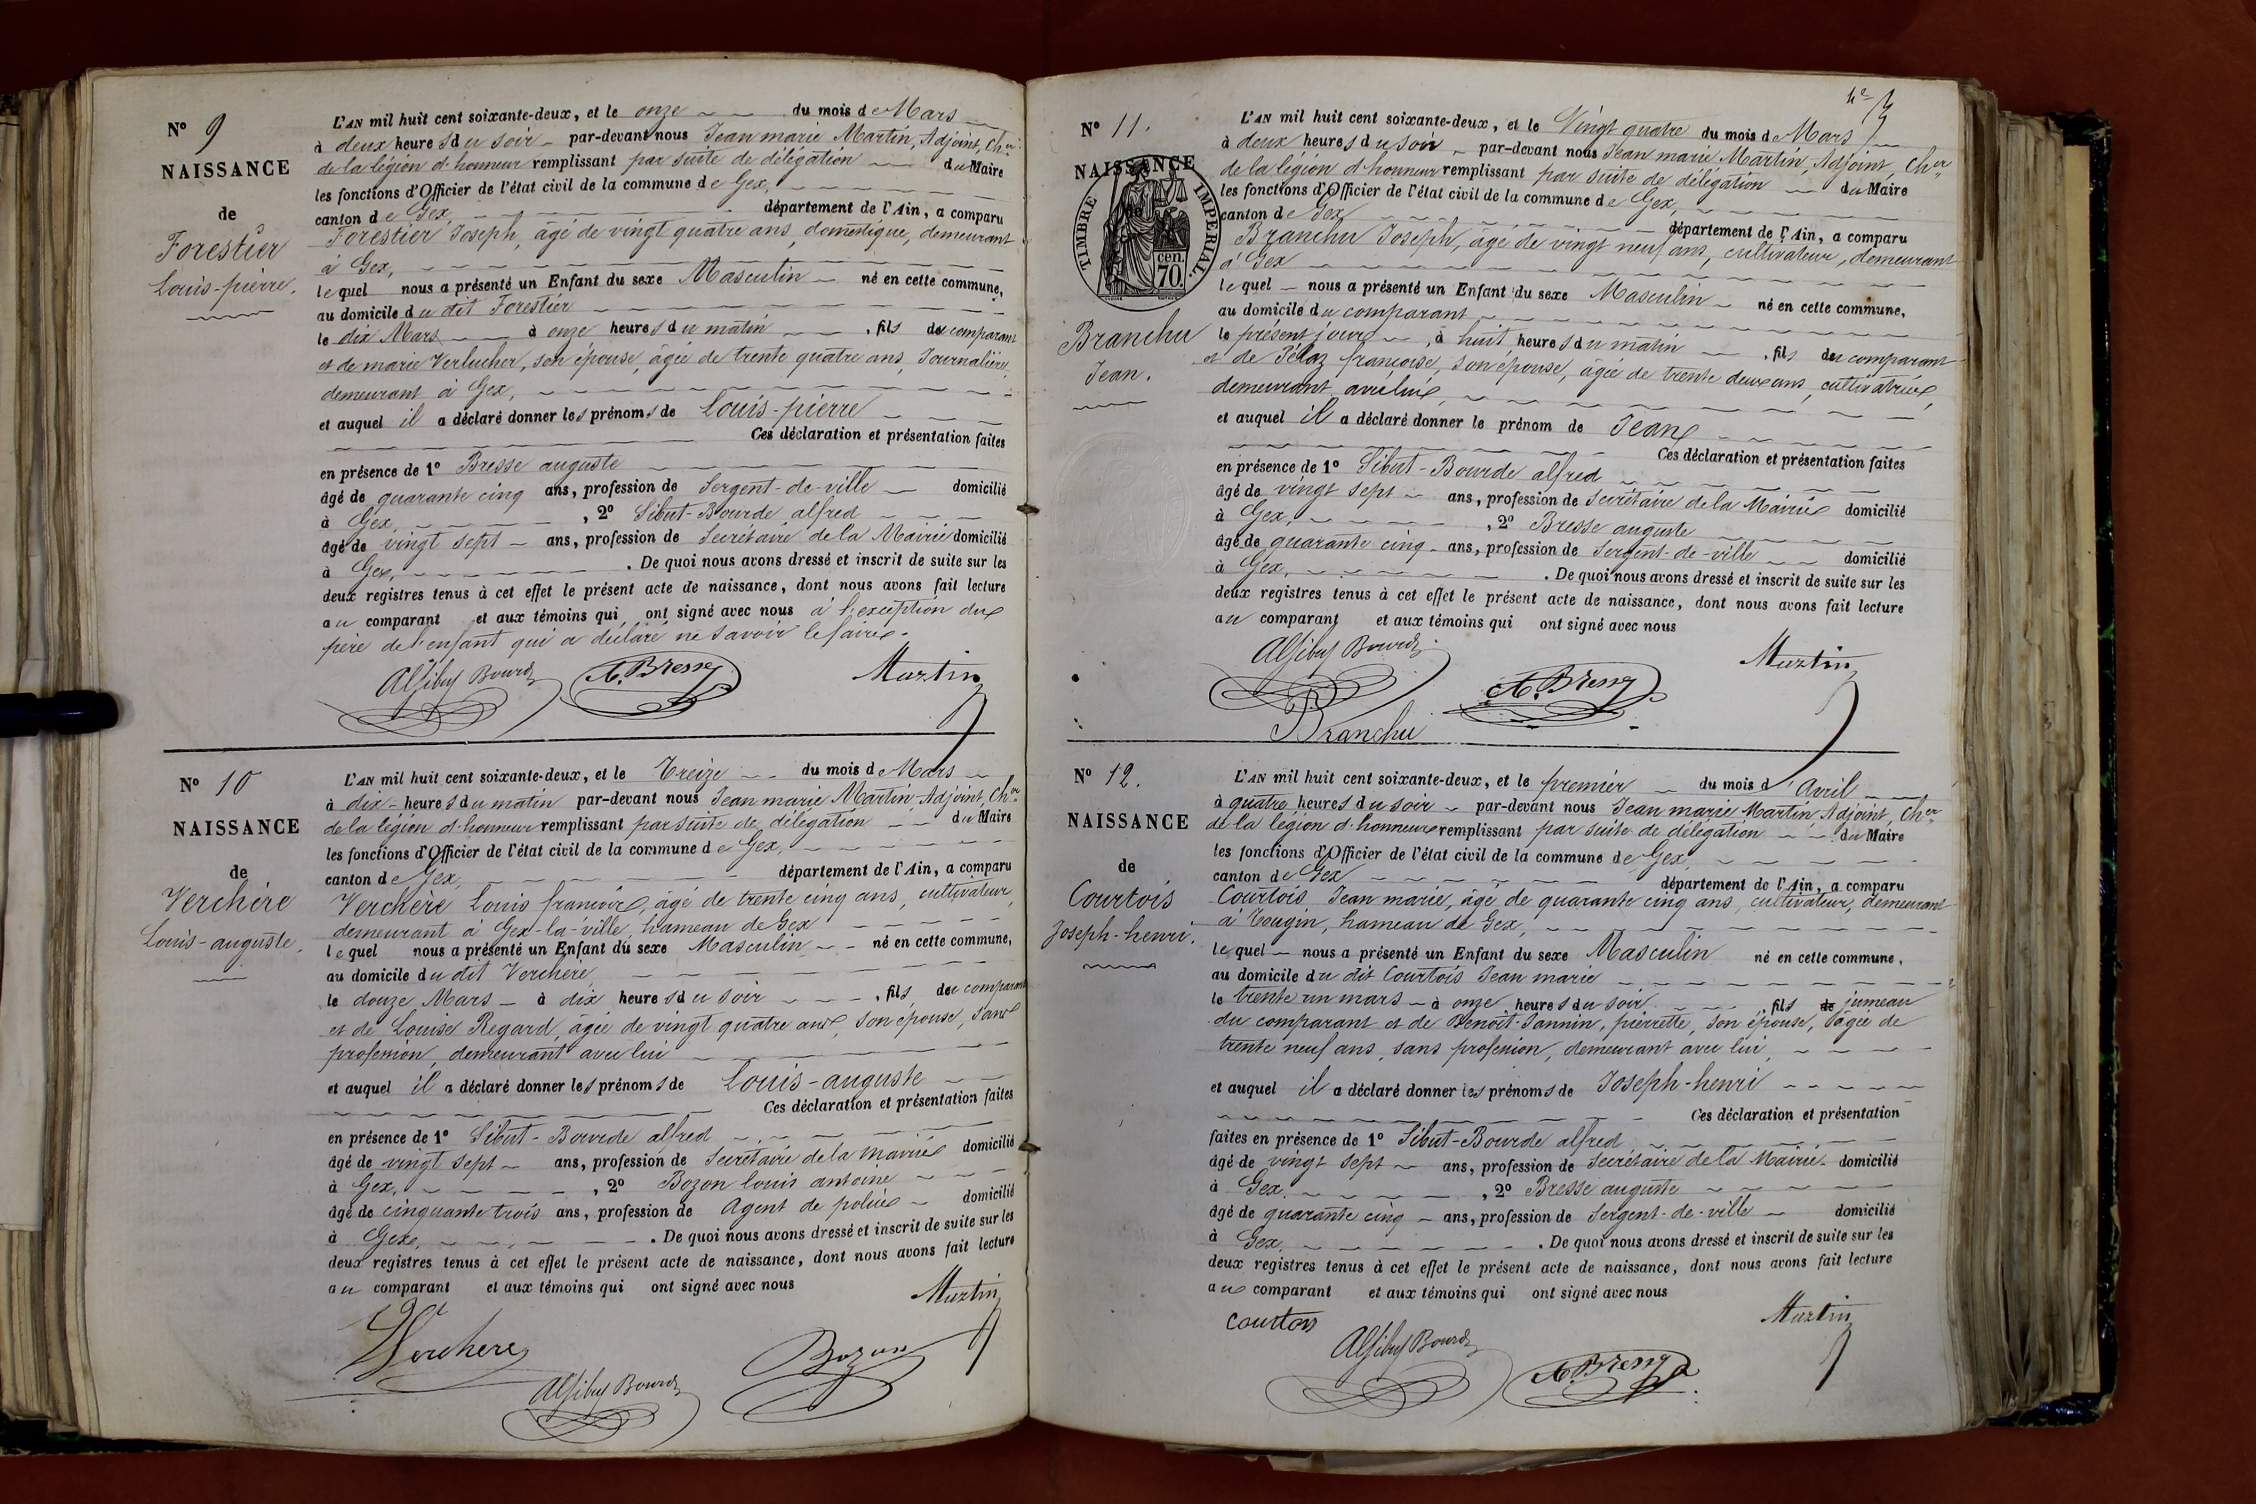 N° 9
NAISSANCE
de
Forestier
Louis-pierre.
L'AN mil huit cent soixante-deux, et le onze du mois de Mars
à deux heures du soir par-devant nous Jean marie Martin, Adjoint, Cher
de la légion d'honneur remplissant par suite de délégation du Maire
les fonctions d'Officier de l'état civil de la commune de Gex,
canton de Gex, département de l'Ain, a comparu
Forestier Joseph, âgé de vingt quatre ans, domestique, demeurant
à Gex,
lequel nous a présenté un Enfant du sexe Masculin né en cette commune,
au domicile du dit Forestier
le dix Mars à onze heures du matin, fils du comparant
et de marie Verluchet, son épouse, âgée de trente quatre ans, Journalière,
demeurant à Gex,
et auquel il a déclaré donner les prénoms de Louis-pierre
Ces déclaration et présentation faites
en présence de 1° Bresse auguste
âgé de quarante cinq ans, profession de Sergent-de-ville domicilié
à Gex, 2° Sibut-Bourde alfred
âgé de vingt sept ans, profession de Secrétaire de la Mairie domicilié
à Gex, . De quoi nous avons dressé et inscrit de suite sur les
deux registres tenus à cet effet le présent acte de naissance, dont nous avons fait lecture
au comparant et aux témoins qui ont signé avec nous à l'exception du
père de l'enfant qui a déclaré ne savoir le faire.
A Sibut Bourde A. Bresse Martin
N° 10
NAISSANCE
de
Verchère
Louis-auguste.
L'AN mil huit cent soixante-deux, et le Treize du mois de Mars
à dix heures du matin par-devant nous Jean marie Martin Adjoint, Cher
de la légion d'honneur remplissant par suite de délégation du Maire
les fonctions d'Officier de l'état civil de la commune de Gex,
canton de Gex, département de l'Ain, a comparu
Verchère Louis francois, âgé de trente cinq ans, cultivateur,
demeurant à Gex-la-ville, hameau de Gex
lequel nous a présenté un Enfant du sexe Masculin né en cette commune,
au domicile du dit Verchère,
le douze Mars à dix heures du soir, fils du comparant
et de Louise Regard, âgée de vingt quatre ans, son épouse, sans
profession, demeurant avec lui
et auquel il a déclaré donner les prénoms de Louis-auguste
Ces déclaration et présentation faites
en présence de 1° Sibut-Bourde alfred
âgé de vingt sept ans, profession de Secrétaire de la mairie domicilié
à Gex, 2° Bozon louis antoine
âgé de cinquante trois ans, profession de Agent de police domicilié
à Gex, . De quoi nous avons dressé et inscrit de suite sur les
deux registres tenus à cet effet le présent acte de naissance, dont nous avons fait lecture
au comparant et aux témoins qui ont signé avec nous
Martin
Verchere A Sibut Bourde Bozon
N° 11.
NAISSANCE
TIMBRE IMPERIAL.
cen. 70.
Branchu
Jean.
L'AN mil huit cent soixante-deux, et le Vingt quatre du mois de Mars
à deux heures du soir par-devant nous Jean marie Martin, Adjoint, Cher
de la légion d'honneur remplissant par suite de délégation du Maire
les fonctions d'Officier de l'état civil de la commune de Gex,
canton de Gex département de l'Ain, a comparu
Branchu Joseph, âgé de vingt neuf ans, cultivateur, demeurant
à Gex
lequel nous a présenté un Enfant du sexe Masculin né en cette commune,
au domicile du comparant
le présent jour, à huit heures du matin, fils du comparant
et de Pélaz françoise, son épouse, âgée de trente deux ans, cultivatrice,
demeurant avec lui,
et auquel il a déclaré donner le prénom de Jean
Ces déclaration et présentation faites
en présence de 1° Sibut-Bourde alfred
âgé de vingt sept ans, profession de Secrétaire de la Mairie domicilié
à Gex, 2° Bresse auguste
âgé de quarante cinq ans, profession de Sergent-de-ville domicilié
à Gex, . De quoi nous avons dressé et inscrit de suite sur les
deux registres tenus à cet effet le présent acte de naissance, dont nous avons fait lecture
au comparant et aux témoins qui ont signé avec nous
A Sibut Bourde A. Bresse Martin
Branchu
N° 12.
NAISSANCE
de
Courtois
Joseph-henri.
L'AN mil huit cent soixante-deux, et le premier du mois d'avril
à quatre heures du soir par-devant nous Jean marie Martin Adjoint, Cher
de la légion d'honneur remplissant par suite de délégation du Maire
les fonctions d'Officier de l'état civil de la commune de Gex,
canton de Gex département de l'Ain, a comparu
Courtois Jean marie, âgé de quarante cinq ans, cultivateur, demeurant
à Tougin, hameau de Gex,
lequel nous a présenté un Enfant du sexe Masculin né en cette commune,
au domicile du dit Courtois Jean marie
le trente un mars à onze heures du soir, fils de jumeau
du comparant et de Benoit-Jannin, pierrette, son épouse, âgée de
trente neuf ans, sans profession, demeurant avec lui,
et auquel il a déclaré donner les prénoms de Joseph-henri
Ces déclaration et présentation
faites en présence de 1° Sibut-Bourde alfred
âgé de vingt sept ans, profession de Secrétaire de la Mairie domicilié
à Gex, 2° Bresse auguste
âgé de quarante cinq ans, profession de Sergent-de-ville domicilié
à Gex, . De quoi nous avons dressé et inscrit de suite sur les
deux registres tenus à cet effet le présent acte de naissance, dont nous avons fait lecture
au comparant et aux témoins qui ont signé avec nous
Courtois A Sibut Bourde A. Bresse Martin